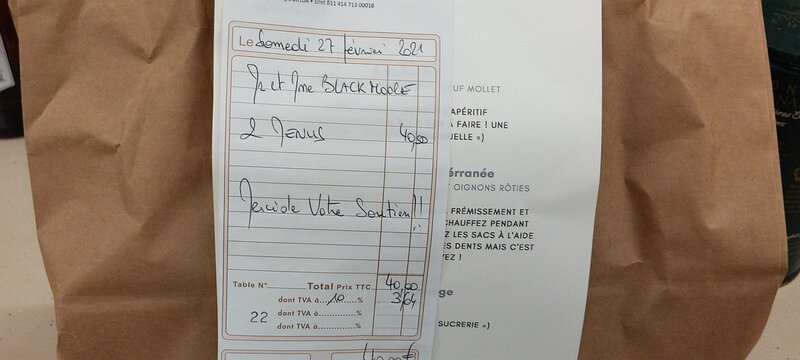 siret 811 414 713 00016
Le Samedi 27 février 2021
Mr et Mme BLACKMOORE
2 Menus 40,00
Merci de Votre Soutien!!
Table N° Total Prix TTC 40,00
dont TVA à 10 % 3,64
dont TVA à %
22
dont TVA à %
UF MOLLET
APÉRITIF
À FAIRE ! UNE
UELLE =)
érranée
T OIGNONS RÔTIES
FRÉMISSEMENT ET
CHAUFFEZ PENDANT
EZ LES SACS À L'AIDE
ES DENTS MAIS C'EST
VEZ !
ge
SUCRERIE =)